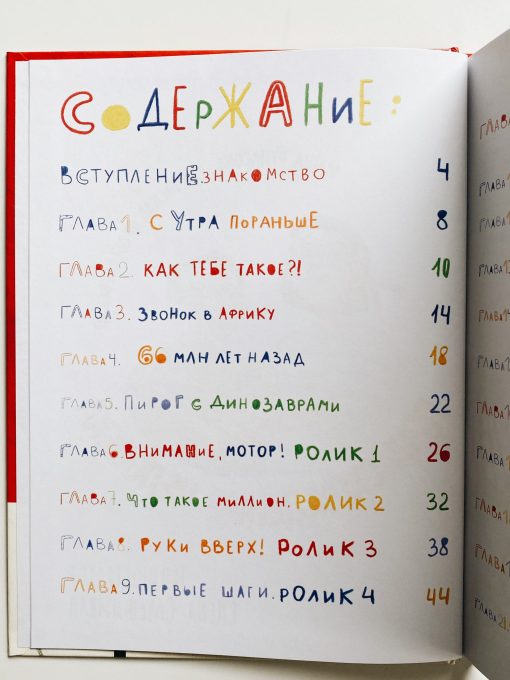 СОДЕРЖАНИЕ:
ВСТУПЛЕНИЕ. ЗНАКОМСТВО 4
ГЛАВА 1. С УТРА ПОРАНЬШЕ 8
ГЛАВА 2. КАК ТЕБЕ ТАКОЕ?! 10
ГЛАВА 3. ЗВОНОК В АФРИКУ 14
ГЛАВА 4. 66 МЛН ЛЕТ НАЗАД 18
ГЛАВА 5. ПИРОГ С ДИНОЗАВРАМИ 22
ГЛАВА 6. ВНИМАНИЕ, МОТОР! РОЛИК 1 26
ГЛАВА 7. ЧТО ТАКОЕ МИЛЛИОН. РОЛИК 2 32
ГЛАВА 8. РУКИ ВВЕРХ! РОЛИК 3 38
ГЛАВА 9. ПЕРВЫЕ ШАГИ. РОЛИК 4 44